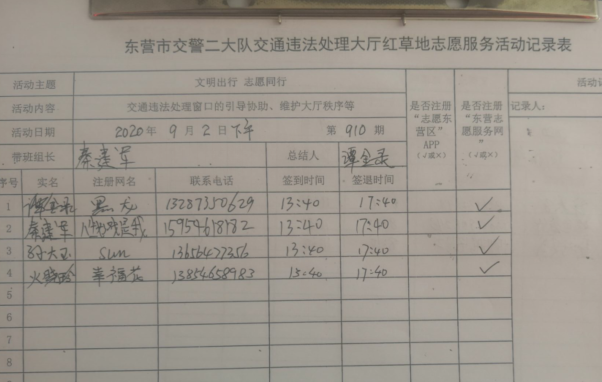 东营市交警二大队交通违法处理大厅红草地志愿服务活动记录表
活动主题 文明出行 志愿同行
活动内容 交通违法处理窗口的引导协助、维护大厅秩序等
活动日期 2020年9月2日下午 第910期
是否注册“志愿东营区”APP（√或×）
是否注册“东营志愿服务网”（√或×）
活动记
记录人：
带班组长 秦建军 总结人 谭金录
序号 实名 注册网名 联系电话 签到时间 签退时间
1 谭金录 黑龙 13287350629 13:40 17:40 ✓
2 秦建军 15959618182 13:40 17:40 ✓
3 孙大卫 sun 13656477356 13:40 17:40 ✓
4 幸福花 13854658983 13:40 17:40 ✓
5
6
7
8